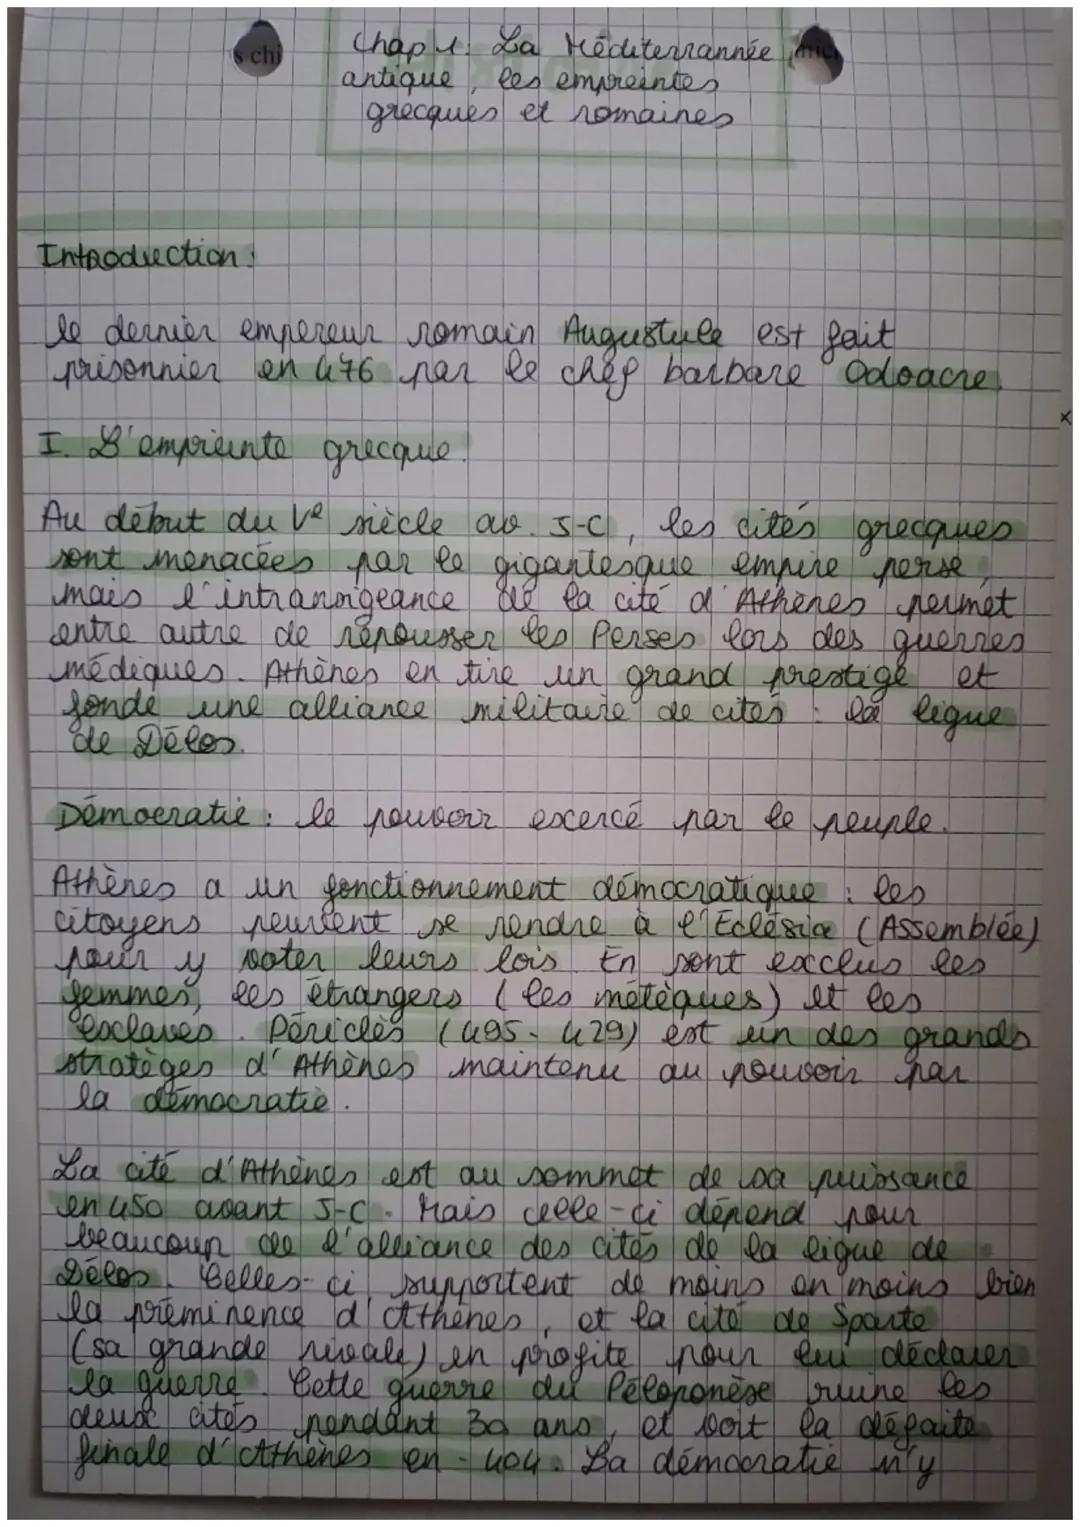 s chi
Chap 1: La Méditerrannée
antique, les empreintes
grecques et romaines
Introduction:
le dernier empereur romain Augustule est fait
prisonnier en 476 par le chef barbare Odoacre.
I. L'empreinte grecque.
Au début du Ve siècle av. J-C, les cités grecques
sont menacées par le gigantesque empire perse,
mais l'intransigeance de la cité d'Athènes permet
entre autre de repousser les Perses lors des guerres
médiques. Athènes en tire un grand prestige et
fonde une alliance militaire de cités : la ligue
de Délos.
Démocratie : le pouvoir excercé par le peuple.
Athènes a un fonctionnement démocratique : les
citoyens peuvent se rendre à l'Eclésia (Assemblée)
pour y voter leurs lois. En sont exclus les
femmes, les étrangers (les métèques) et les
esclaves. Périclès (495-429) est un des grands
stratèges d'Athènes maintenu au pouvoir par
la démocratie.
La cité d'Athènes est au sommet de sa puissance
en 450 avant J-C. Mais celle-ci dépend pour
beaucoup de l'alliance des cités de la ligue de
Délos. Celles-ci supportent de moins en moins bien
la préminence d'Athènes, et la cité de Sparte
(sa grande rivale) en profite pour lui déclarer
la guerre. Cette guerre du Péloponèse ruine les
deux cités pendant 30 ans, et voit la défaite
finale d'Athènes en -404. La démocratie n'y